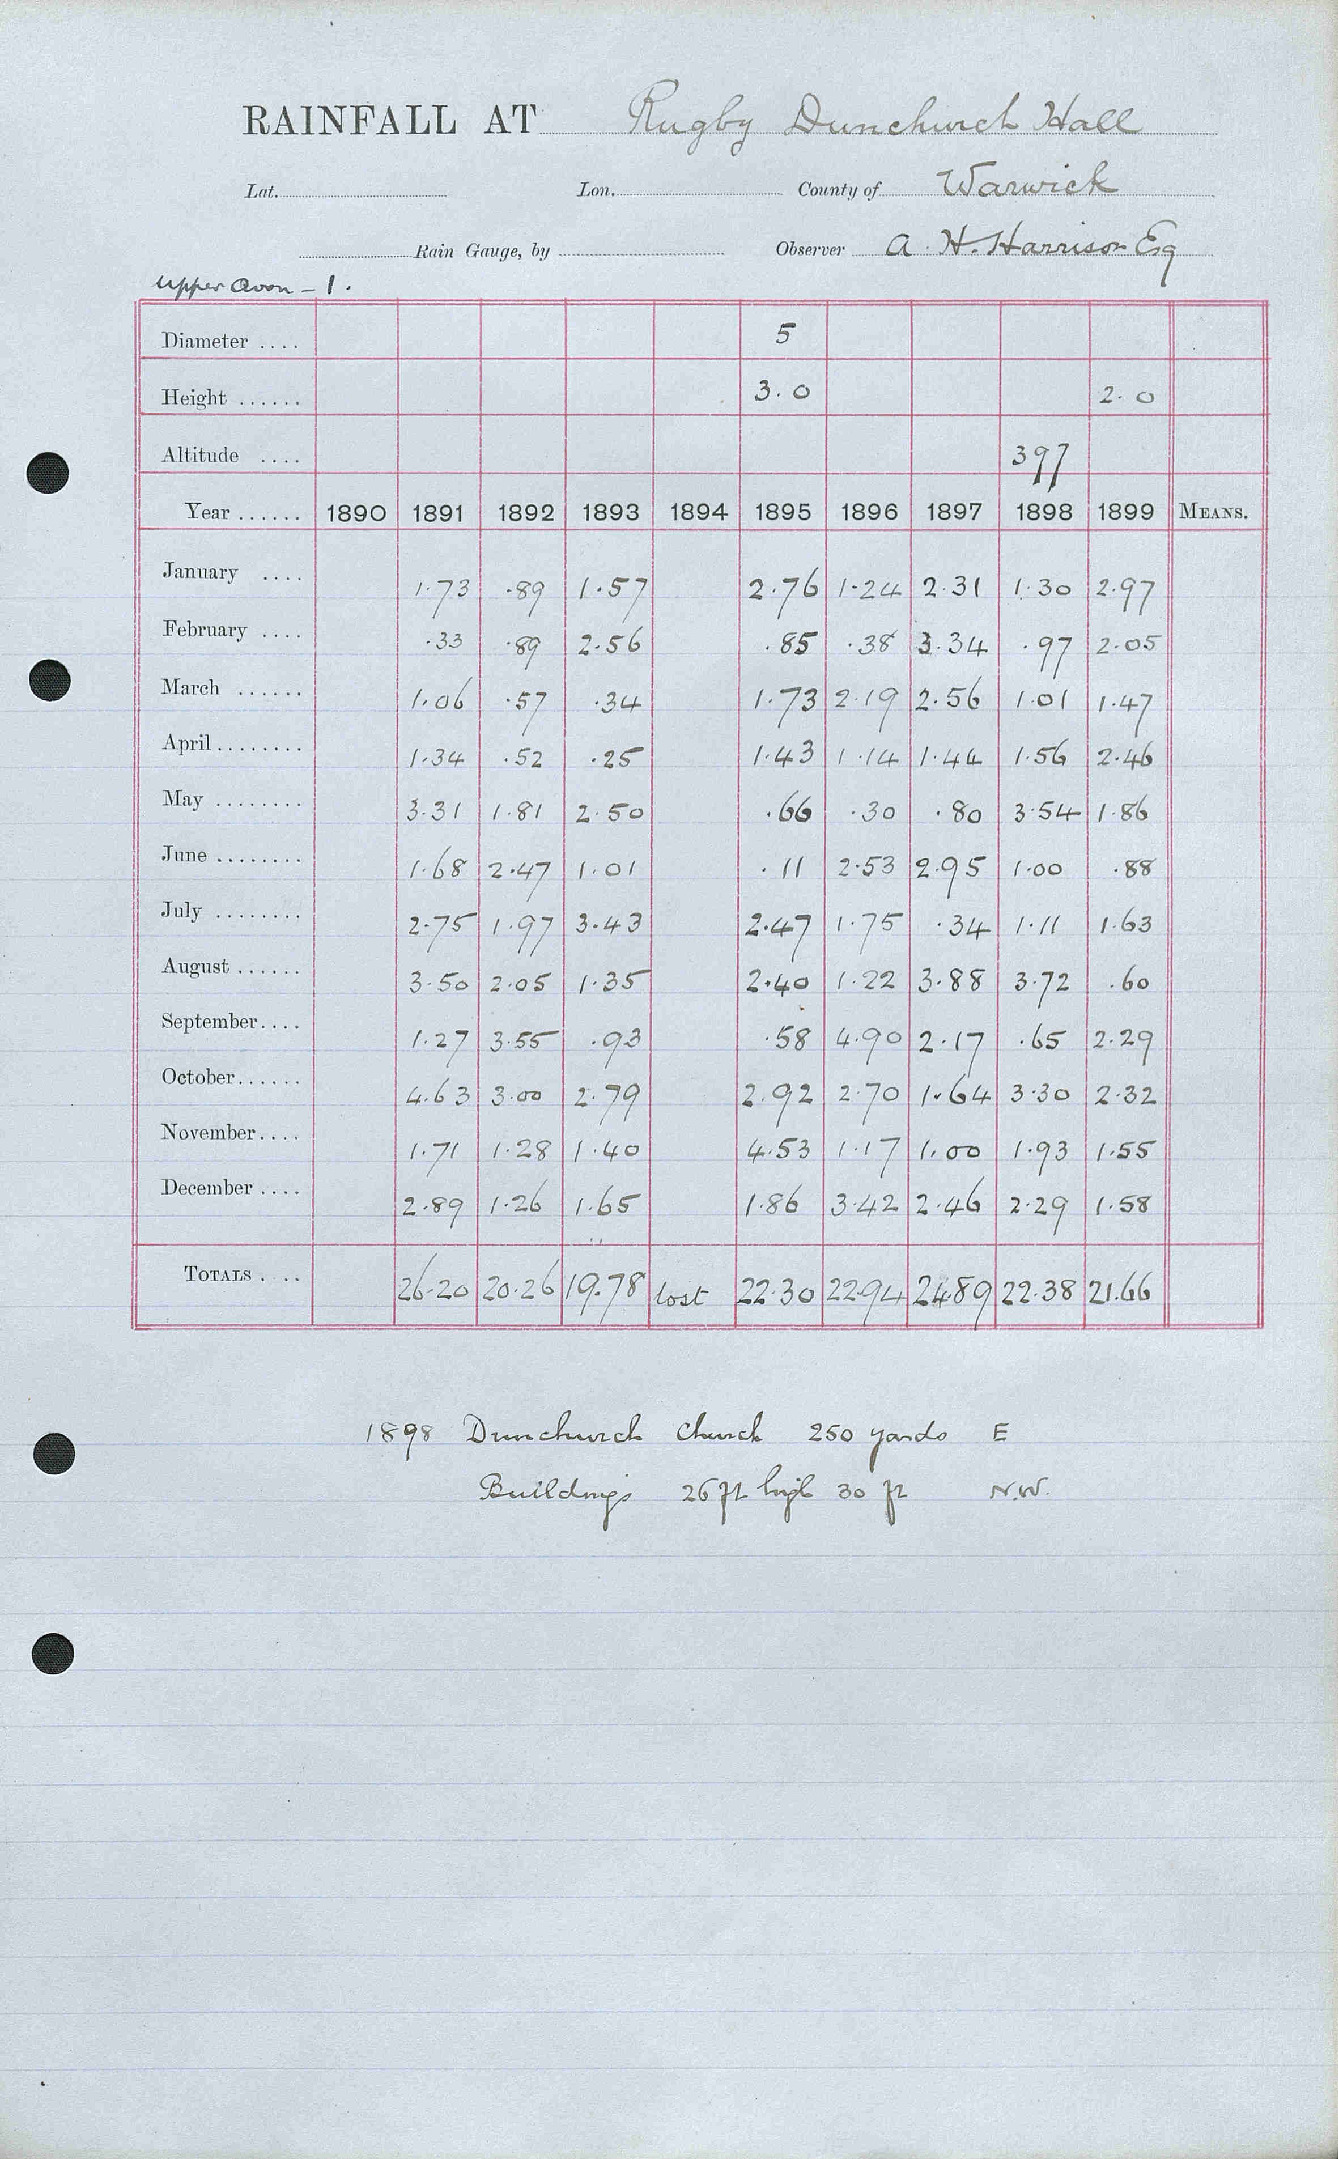 RAINFALL AT Rugby Dunchurch Hall
Lat. Lon. County of Warwick
Rain Gauge, by Observer A. H. Harrison Esq
Upper Avon - 1.
Diameter .... 5
Height ...... 3.0 2.0
Altitude .... 397
Year ...... 1890 1891 1892 1893 1894 1895 1896 1897 1898 1899 MEANS.
January .... 1.73 .89 1.57 2.76 1.24 2.31 1.30 2.97
February .... .33 .89 2.56 .85 .38 3.34 .97 2.05
March ...... 1.06 .57 .34 1.73 2.19 2.56 1.01 1.47
April ........ 1.34 .52 .25 1.43 1.14 1.44 1.56 2.46
May ........ 3.31 1.81 2.50 .66 .30 .80 3.54 1.86
June ........ 1.68 2.47 1.01 .11 2.53 2.95 1.00 .88
July ........ 2.75 1.97 3.43 2.47 1.75 .34 1.11 1.63
August ...... 3.50 2.05 1.35 2.40 1.22 3.88 3.72 .60
September .... 1.27 3.55 .93 .58 4.90 2.17 .65 2.29
October ...... 4.63 3.00 2.79 2.92 2.70 1.64 3.30 2.32
November .... 1.71 1.28 1.40 4.53 1.17 1.00 1.93 1.55
December .... 2.89 1.26 1.65 1.86 3.42 2.46 2.29 1.58
TOTALS .... 26.20 20.26 19.78 lost 22.30 22.94 24.89 22.38 21.66
1898 Dunchurch Church 250 yards E
Buildings 26 ft high 30 ft N.W.